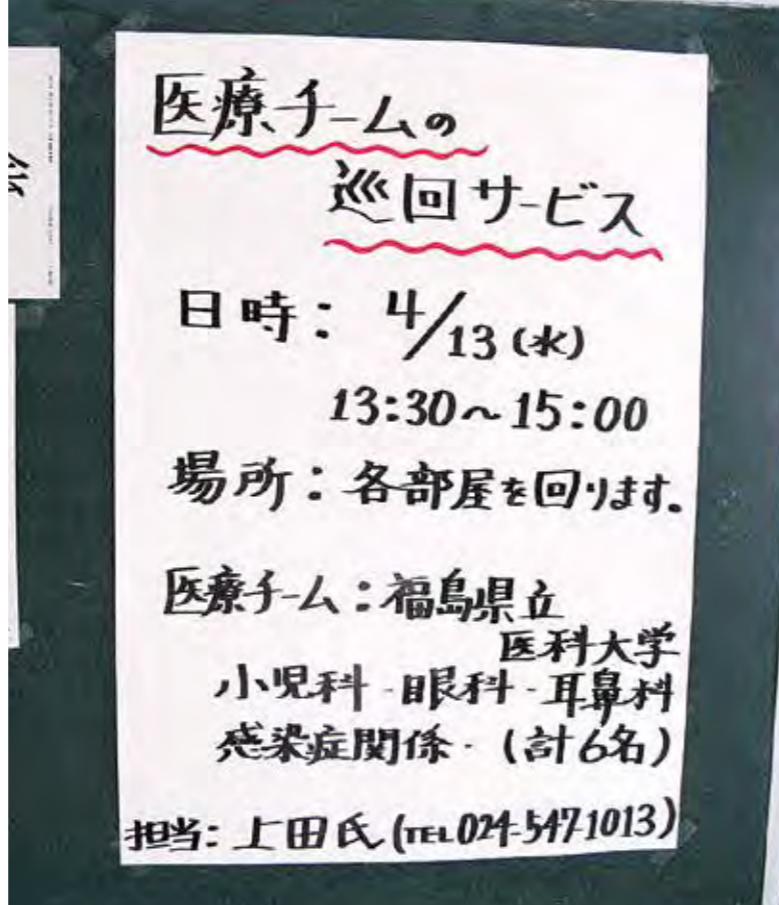 医療チームの
巡回サービス
日時: 4/13(水)
13:30~15:00
場所:各部屋を回ります。
医療チーム:福島県立
医科大学
小児科・眼科・耳鼻科
感染症関係・(計6名)
担当:上田氏(TEL024-547-1013)